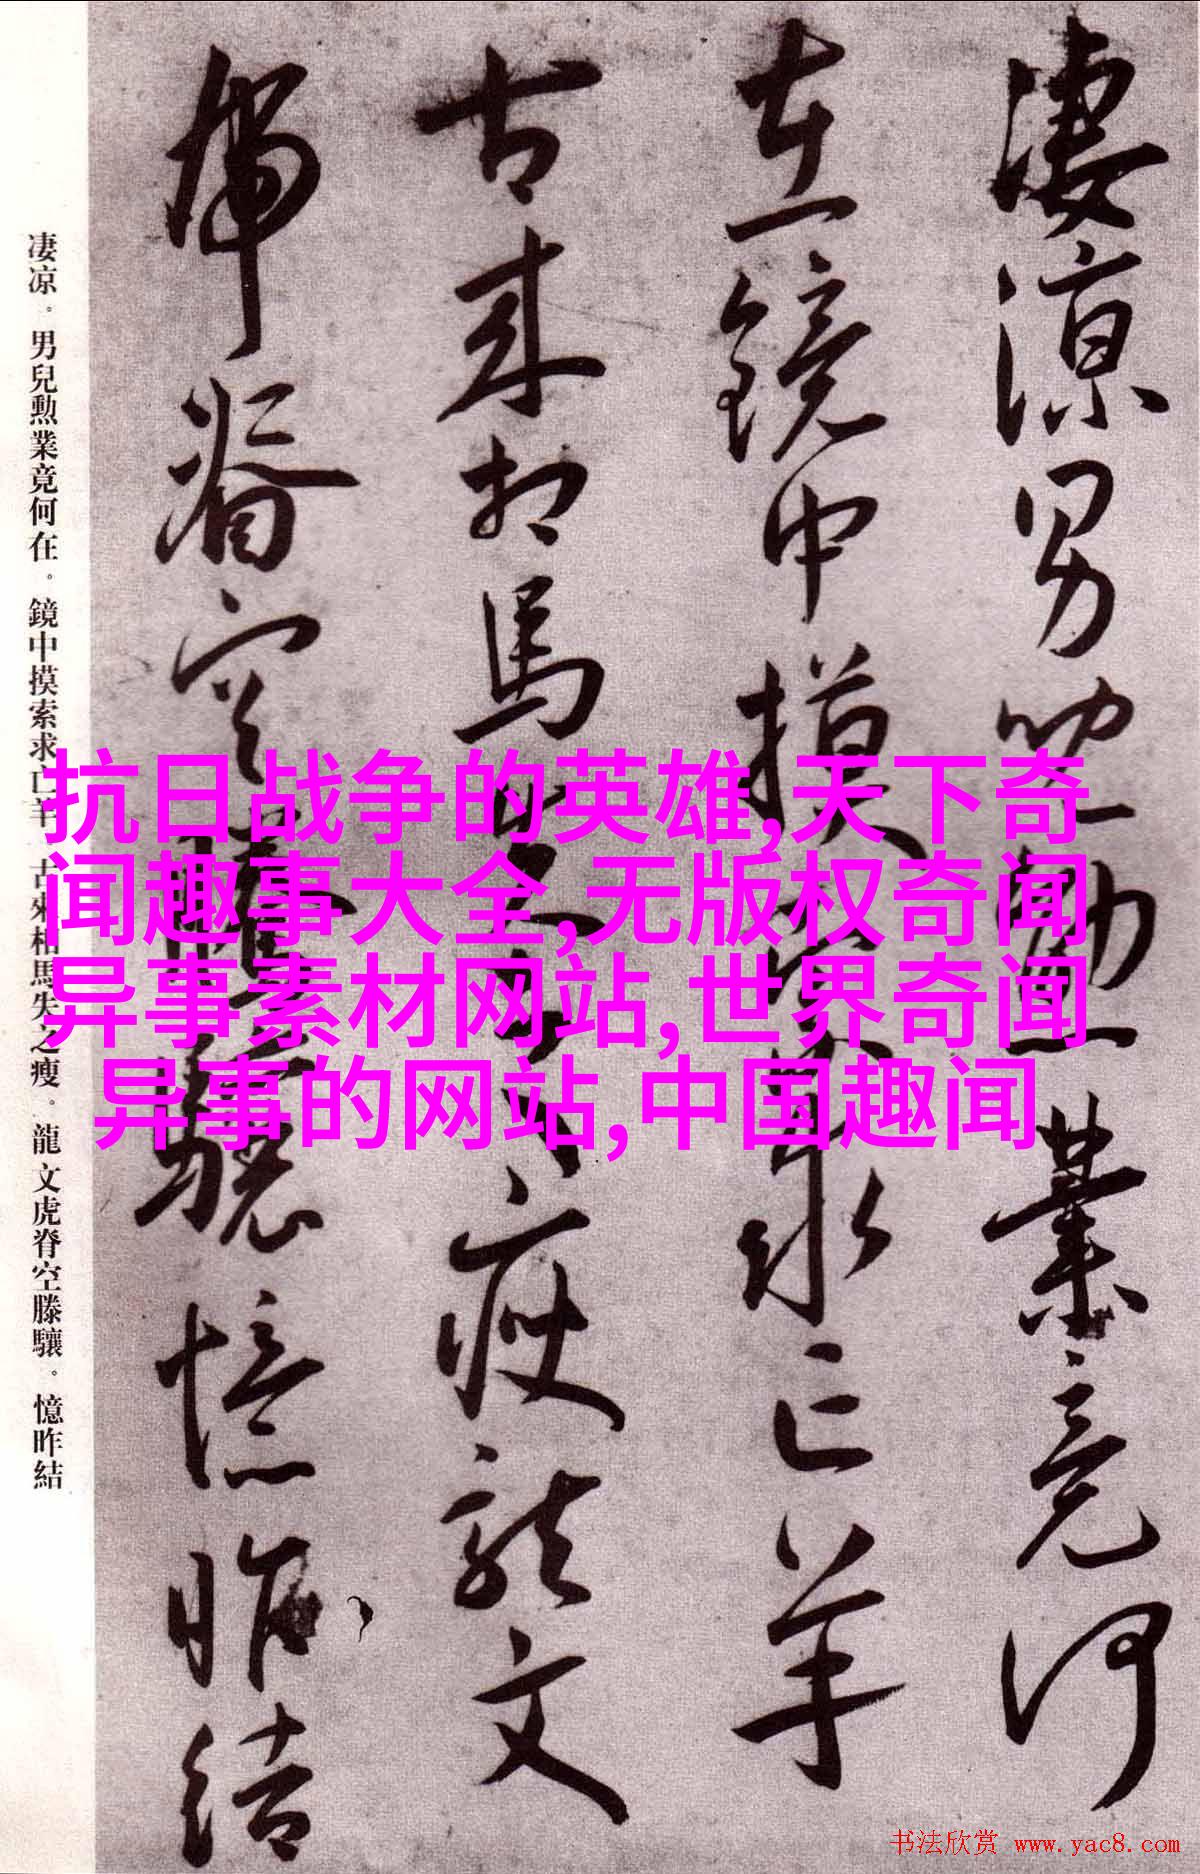 凄涼男兒勳業竟何
在鏡中摸索求亡羊
古来相馬失之瘦龍文
虎脊空騰驤憶昨結
凄凉。男兒勳業竟何在。鏡中摸索求亡羊。古來相馬失之瘦。龍文虎脊空滕驤。憶昨結
抗日战争的英雄,天下奇
闻趣事大全,无版权奇闻
异事素材网站,世界奇闻
异事的网站,中国趣闻
书法欣赏 www.yac8.com